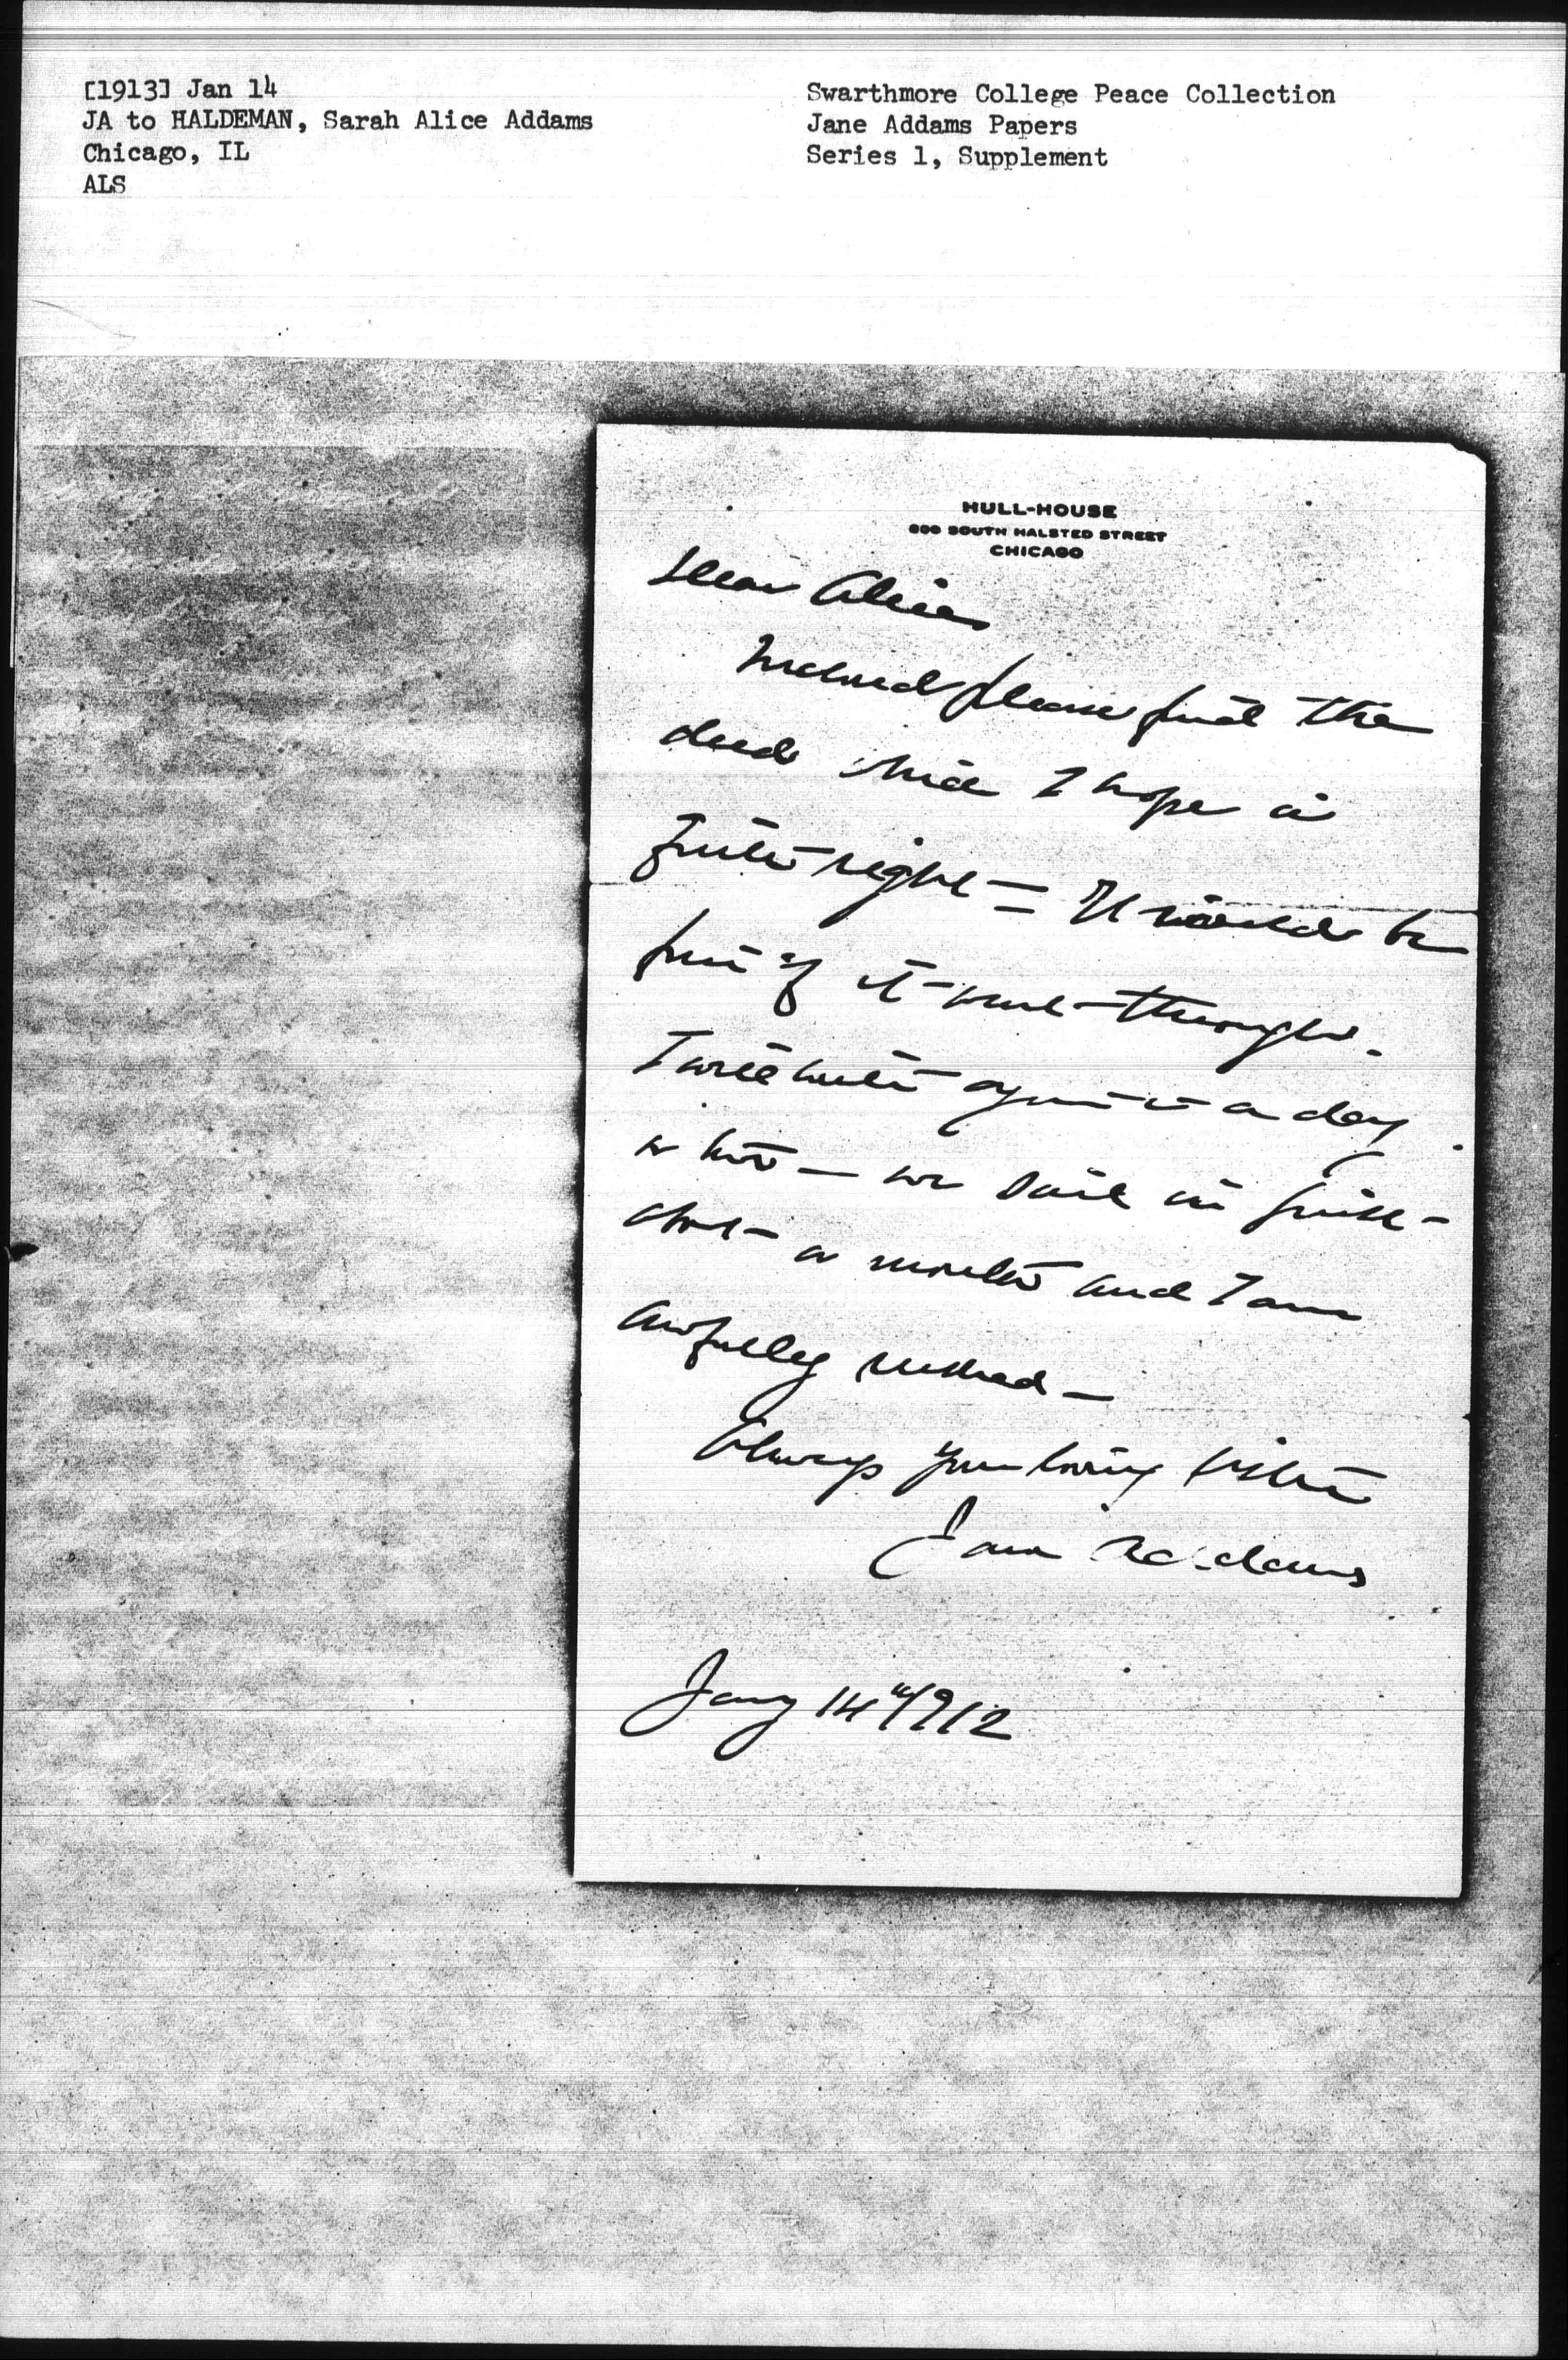 [1913] Jan 14
JA to HALDEMAN, Sarah Alice Addams
Chicago, IL
ALS
Swarthmore College Peace Collection
Jane Addams Papers
Series 1, Supplement
HULL-HOUSE
800 SOUTH HALSTED STREET
CHICAGO
Dear Alice
Inclosed please find the
deed which I hope is
quite right — It would be
fine if it went through.
I will write again in a day
or two — we sail in just
about a month and I am
awfully rushed —
Always your loving sister
Jane Addams
Jany 14" 1912